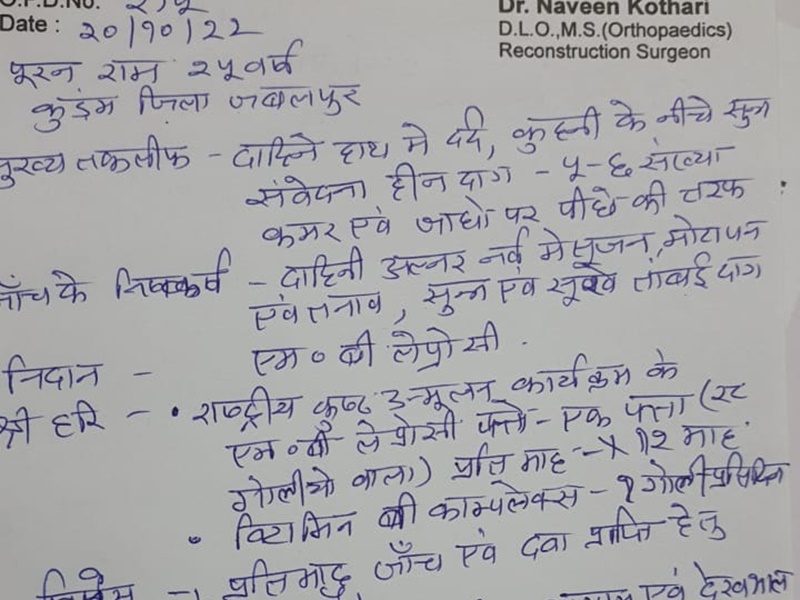 O.P.D.No.
Dr. Naveen Kothari
Date : २०/१०/२२
D.L.O.,M.S.(Orthopaedics)
Reconstruction Surgeon
पूरन राम २५ वर्ष
कुड़म जिला जबलपुर
मुख्य तकलीफ - दाहिने हाथ मे दर्द, कुहनी के नीचे सुन्न
संवेदना हीन दाग - ५-६ संख्या
कमर एवं जांघो पर पीछे की तरफ
जाँच के निष्कर्ष - दाहिनी अल्नर नर्व मे सूजन, मोटापन
एवं तनाव, सुन्न एवं सूखे तांबई दाग
निदान - एम॰बी लेप्रोसी.
श्री हरि - • राष्ट्रीय कुष्ठ उन्मूलन कार्यक्रम के
एम॰बी लेप्रोसी पत्ते - एक पत्ता (२८
गोलियो वाला) प्रति माह - x १२ माह.
• विटामिन बी काम्पलेक्स - १ गोली प्रतिदिन
प्रतिमाह जाँच एवं दवा प्राप्ति हेतु
एवं देखभाल